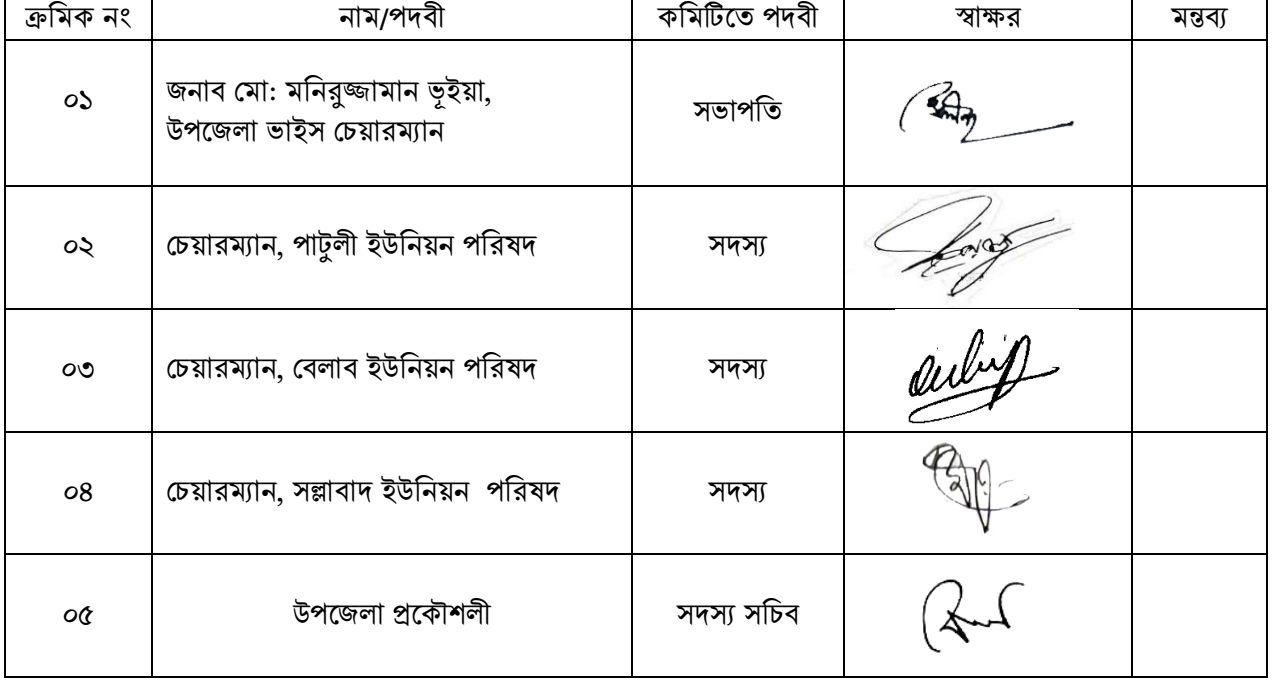 ক্রমিক নং নাম/পদবী কমিটিতে পদবী স্বাক্ষর মন্তব্য
০১ জনাব মো: মনিরুজ্জামান ভূইয়া, উপজেলা ভাইস চেয়ারম্যান সভাপতি
০২ চেয়ারম্যান, পাটুলী ইউনিয়ন পরিষদ সদস্য
০৩ চেয়ারম্যান, বেলাব ইউনিয়ন পরিষদ সদস্য
০৪ চেয়ারম্যান, সল্লাবাদ ইউনিয়ন পরিষদ সদস্য
০৫ উপজেলা প্রকৌশলী সদস্য সচিব